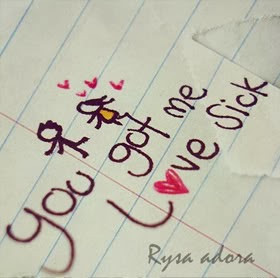 You got me
Love Sick
Rysa adora